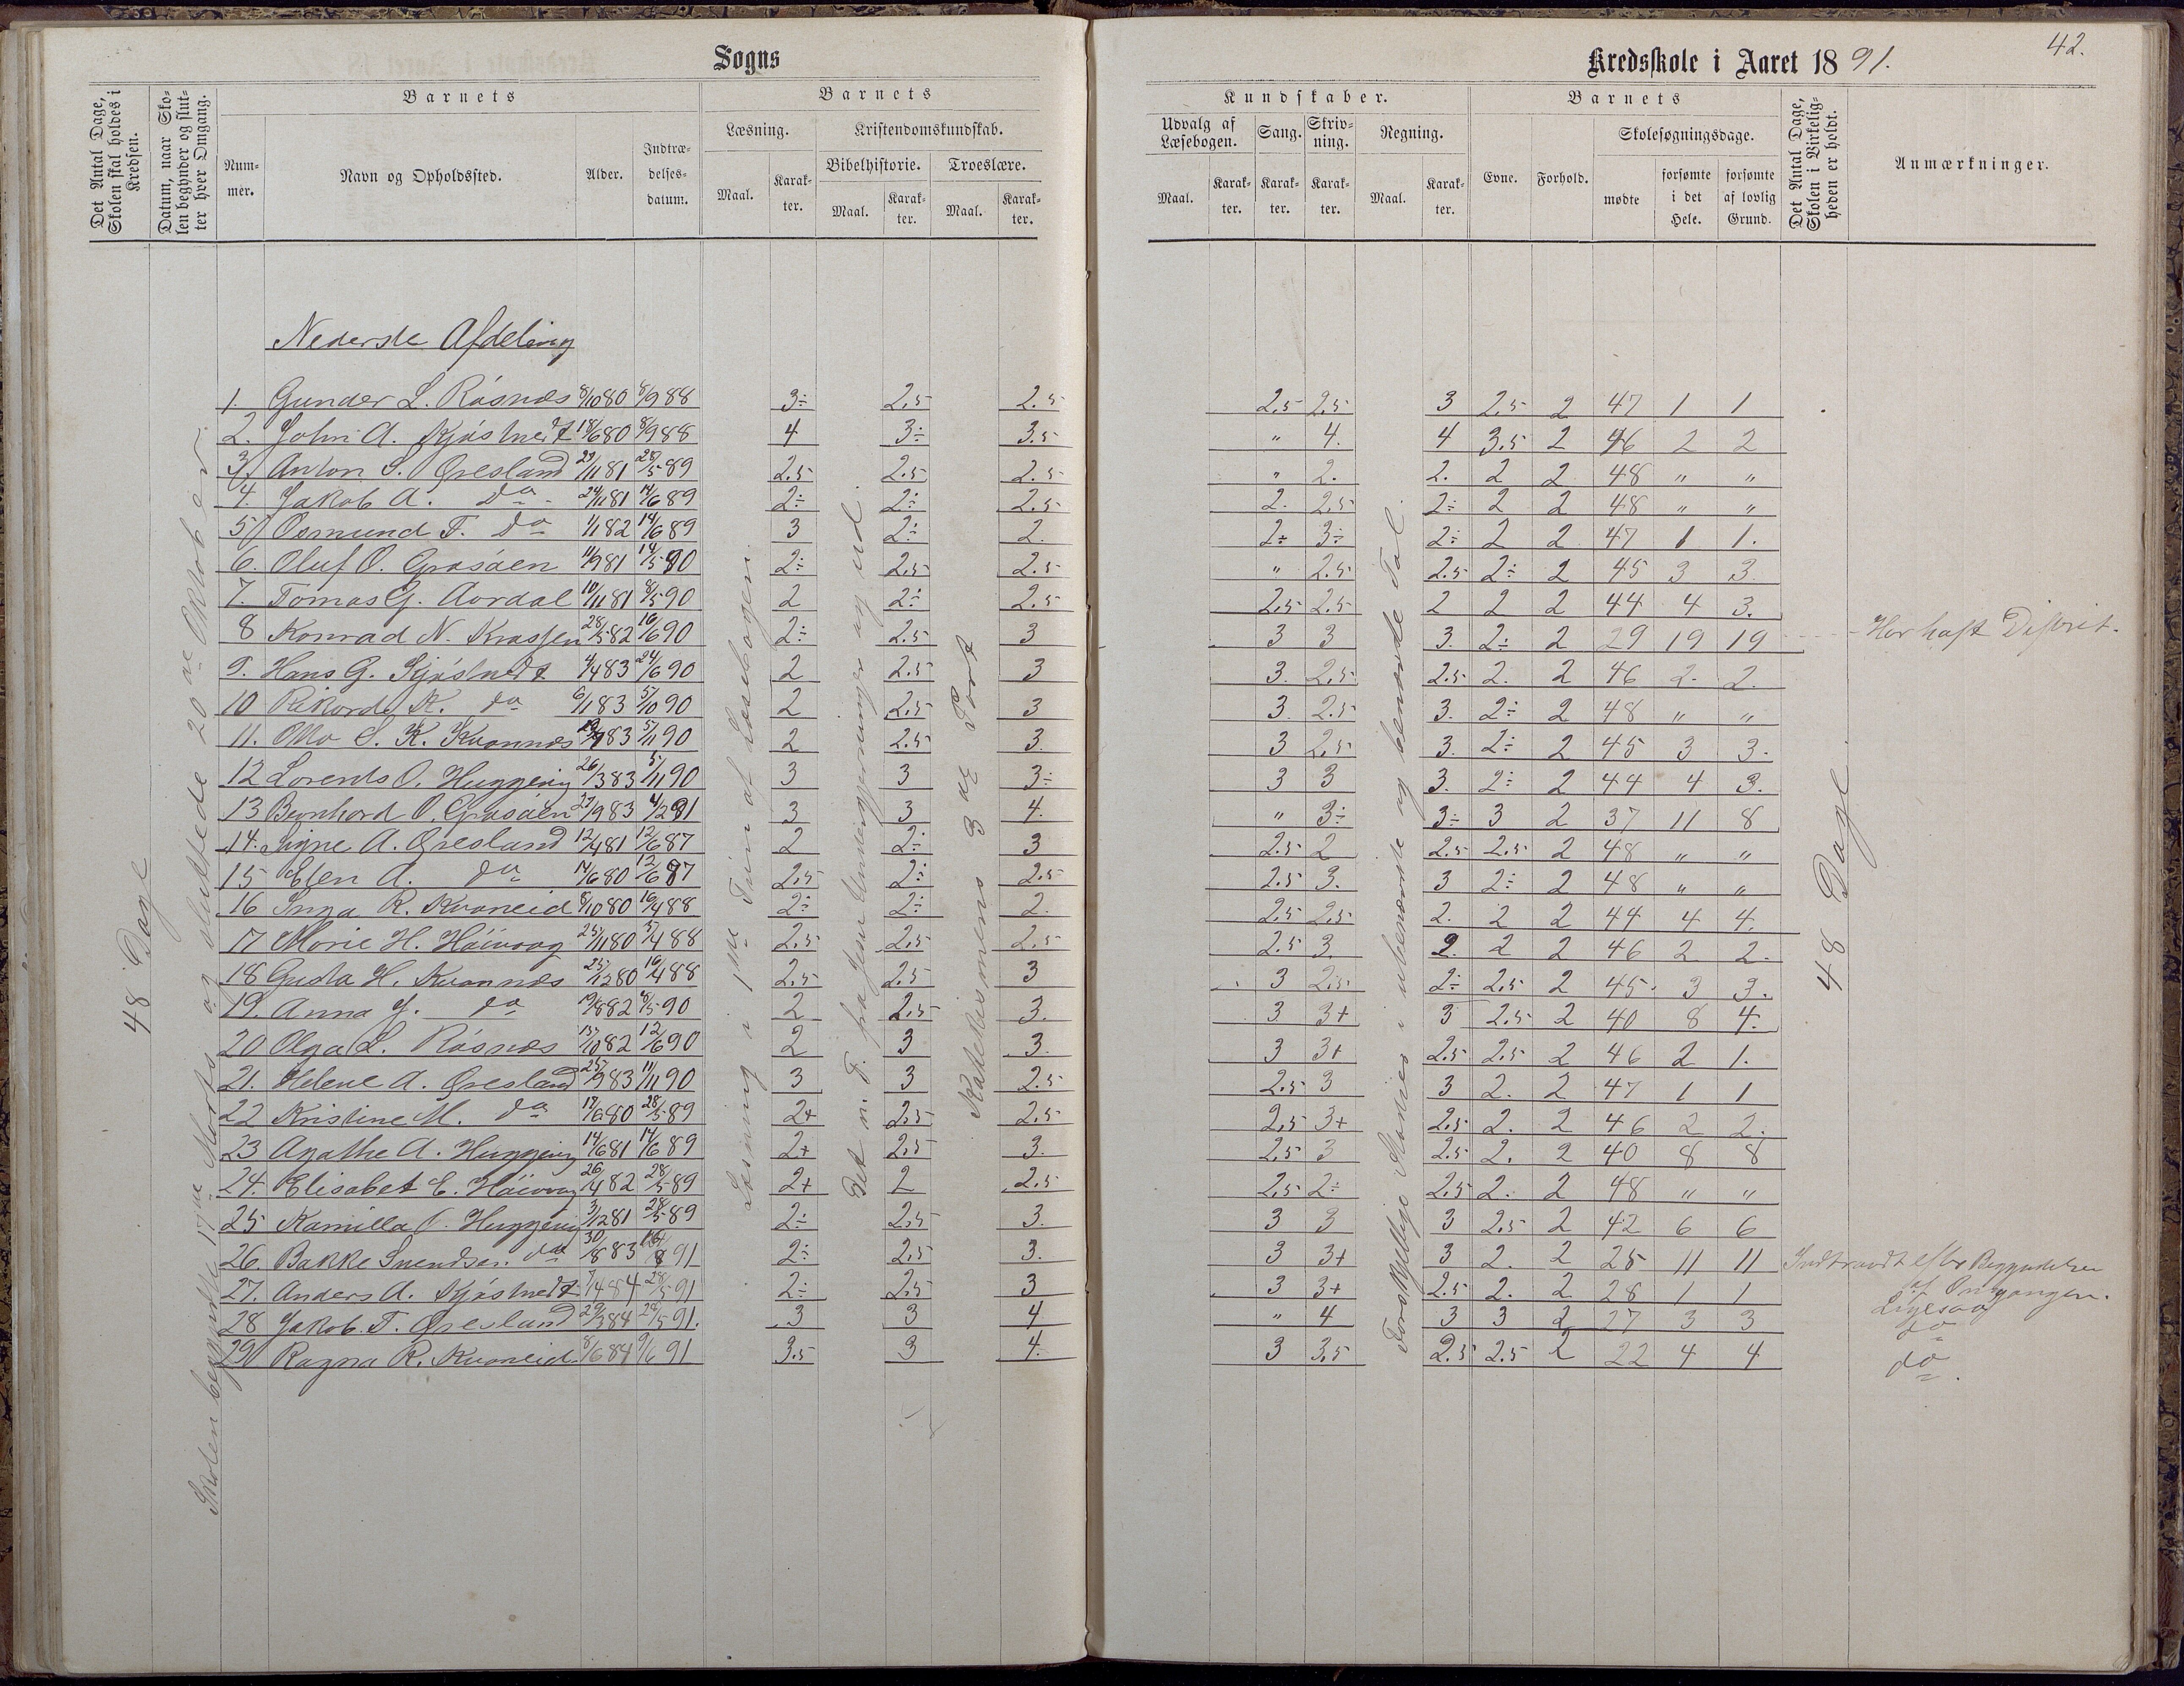 Sogns
Kredsskole i Aaret 1891.
42.
Det Antal Dage, Skolen skal holdes i Kredsen.
Datum, naar Skolen begynder og slutter hver Omgang.
Barnets
Nummer.
Navn og Opholdssted.
Alder.
Indtrædelsesdatum.
Barnets
Læsning.
Kristendomskundskab.
Maal.
Karakter.
Bibelhistorie.
Troeslære.
Maal.
Karakter.
Maal.
Karakter.
Kundskaber.
Udvalg af Læsebogen.
Sang.
Skrivning.
Regning.
Maal.
Karakter.
Karakter.
Karakter.
Maal.
Karakter.
Barnets
Evne.
Forhold.
Skolesøgningsdage.
mødte
forsømte i det Hele.
forsømte af lovlig Grund.
Det Antal Dage, Skolen i Virkeligheden er holdt.
Anmærkninger.
48 Dage
Skolen begyndte 17de Marts og sluttede 20de Oktober.
Læsning i 1ste Trin af Læsebogen.
Det n. T. fra Jesu Undergjerninger og ud.
Katekismens 3 de Part
Forskjellige Stadier i ubenævnte og benævnte Tal.
48 Dage.
Nederste Afdeling
1. Gunder L. Råsnæs 8/10 80 8/9 88 3÷ 2.5 2.5 2.5 2.5 3 2.5 2 47 1 1
2. John A. Kjøstvedt 18/6 80 8/9 88 4 3÷ 3.5 " 4. 4 3.5 2 46 2 2
3. Anton S. Øresland 29/11 81 28/5 89 2.5 2.5 2.5 " 2. 2. 2 2 48 " "
4. Jakob A. do 24/11 81 14/6 89 2÷ 2÷ 2.5 2. 2.5 2÷ 2 2 48 " "
5 Osmund T. do 1/1 82 14/6 89 3 2÷ 2. 2÷ 3÷ 2÷ 2 2 47 1 1.
6. Oluf O. Grasåen 11/9 81 14/5 90 2÷ 2.5 2.5 " 2.5 2.5 2÷ 2 45 3 3
7. Tomas G. Aardal 10/11 81 8/5 90 2 2÷ 2.5 2.5 2.5 2 2 2 44 4 3.
8 Konrad N. Krossen 28/5 82 16/6 90 2÷ 2.5 3 3 3 3. 2÷ 2 29 19 19 Har haft Difterit.
9. Hans G. Kjøstvedt 4/4 83 24/6 90 2 2.5 3 3. 2.5 2.5 2. 2 46 2. 2.
10 Rikard K. do 6/1 83 5/10 90 2 2.5 3 3. 2.5 3. 2÷ 2 48 " "
11. Otto S. K. Kvannes 83 5/11 90 2 2.5 3. 3 2.5 3. 2÷ 2 45 3 3.
12 Lorents O. Huggevig 26/3 83 5/11 90 3 3 3÷ 3 3 3. 2÷ 2 44 4 3.
13 Bernhard O. Grasåen 29/9 83 4/2 91 3 3 4. " 3÷ 3÷ 3 2 37 11 8
14. Signe A. Øresland 12/4 81 12/6 87 2 2÷ 3 2.5 2 2.5 2.5 2 48 " "
15 Elen A. do 14/6 80 12/6 87 2.5 2÷ 2.5 2.5 3. 3 2÷ 2 48 " "
16 Inga R. Kvaneid 8/10 80 16/4 88 2÷ 2÷ 2. 2.5 2.5 2. 2 2 44 4 4.
17 Marie H. Håivaag 25/11 80 5/4 88 2.5 2.5 2.5 2.5 3. 2. 2 2 46 2 2.
18 Gusta H. Kvannes 25/12 80 16/4 88 2.5 2.5 3 3 2.5 2÷ 2.5 2 45. 3 3.
19. Anna J. do 19/8 82 8/5 90 2 2.5 3. 3 3+ 3 2.5 2 40 8 4.
20 Olga L. Råsnæs 15/10 82 12/6 90 2 3 3. 3 3+ 2.5 2.5 2 46 2 1.
21. Helene A. Øresland 25/9 83 11/11 90 3 3 2.5 2.5 3 3 2. 2 47 1 1
22 Kristine M. do 17/6 80 28/5 89 2+ 2.5 2.5 2.5 3+ 2.5 2. 2 46 2 2.
23 Agathe A. Huggevig 14/6 81 14/6 89 2+ 2.5 3. 2.5 3 2.5 2. 2 40 8 8
24. Elisabet E. Håivaag 26/4 82 28/5 89 2+ 2 2.5 2.5 2÷ 2.5 2. 2 48 " "
25 Kamilla O. Huggevig 3/12 81 28/5 89 2÷ 2.5 3. 3 3 3 2.5 2 42 6 6
26. Bakke Svendsen do 30/8 83 91 2÷ 2.5 3. 3 3+ 3 2. 2 25 11 11 Indtraadt efter Begyndelsen af Omgangen.
27. Anders A. Kjøstvedt 7/4 84 28/5 91 2÷ 2.5 3 3 3+ 2.5 2. 2 28 1 1 Ligesaa
28 Jakob. T. Øresland 29/3 84 28/5 91. 3 3 4 " 4 3 3 2 27 3 3 do
29 Ragna R. Kvaneid 8/6 84 9/6 91 3.5 3 4. 3 3.5 2.5 2.5 2 22 4 4 do.